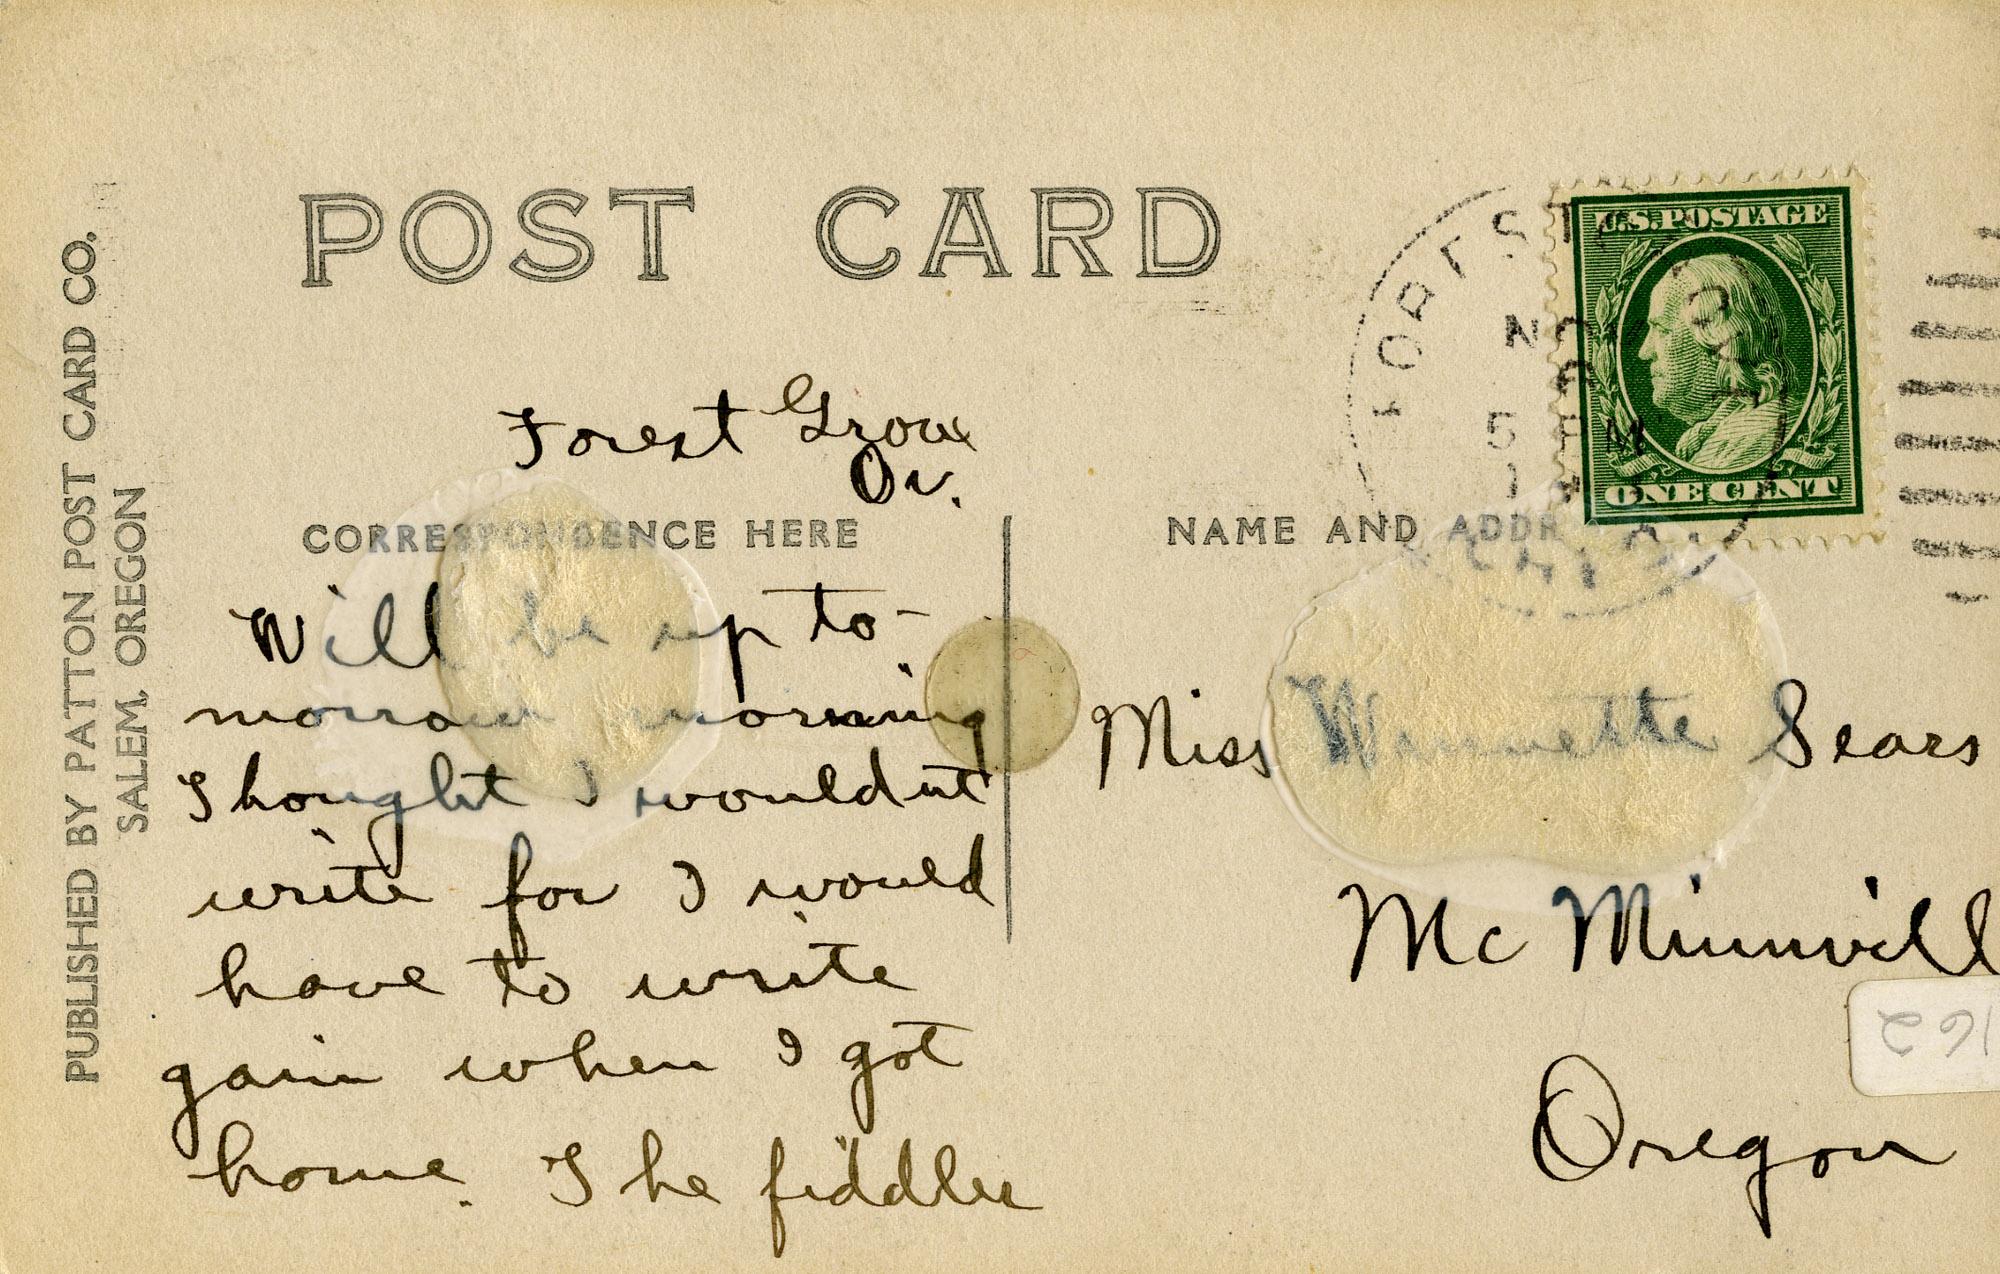 POST CARD
PUBLISHED BY PATTON POST CARD CO.
SALEM, OREGON
Forest Grove
Or.
CORRESPONDENCE HERE
Will be up to-
morrow morning
Thought I wouldnt
write for I would
have to write
gain when I got
home. The fiddler
U.S. POSTAGE
ONE CENT
FOREST
NOV
5 PM
NAME AND ADDR
Miss Winnette Sears
Mc Minnvill
Oregon
162